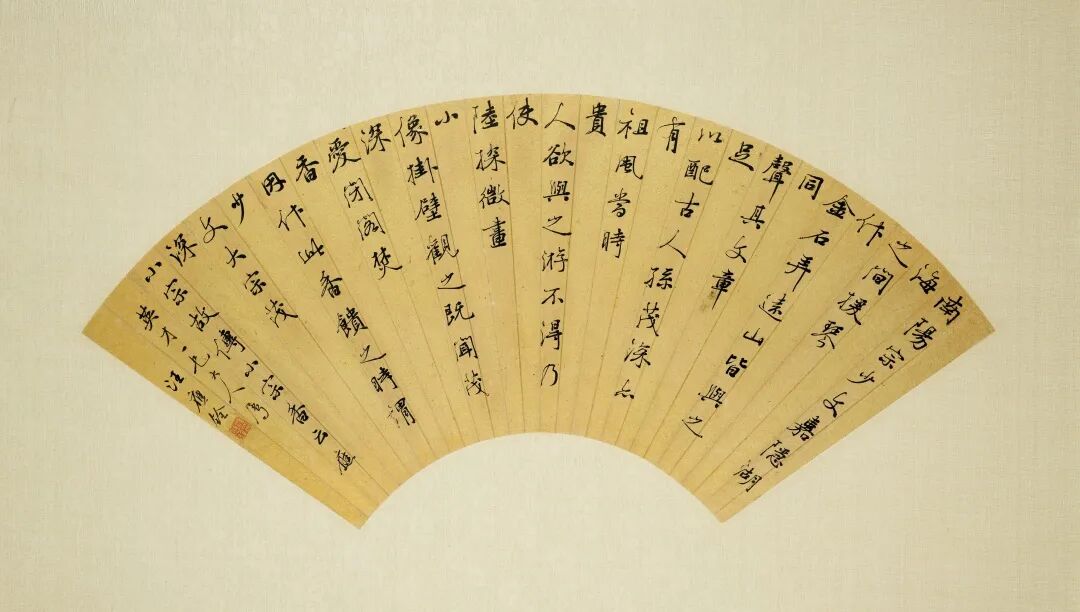 南陽宗少文嘉隱湖
海
之間援琴
作
金石弄遠山皆與之
同
聲其文章
足
以配古人孫茂深亦
有
祖風當時
貴
人欲與之游不得乃
使
陸探微畫
小
像掛壁觀之既聞茂
深
愛閉閣焚
香
因作此香饋之時謂
少
文大宗茂
深
小宗故傳小宗香云應
英才一
汪應銓